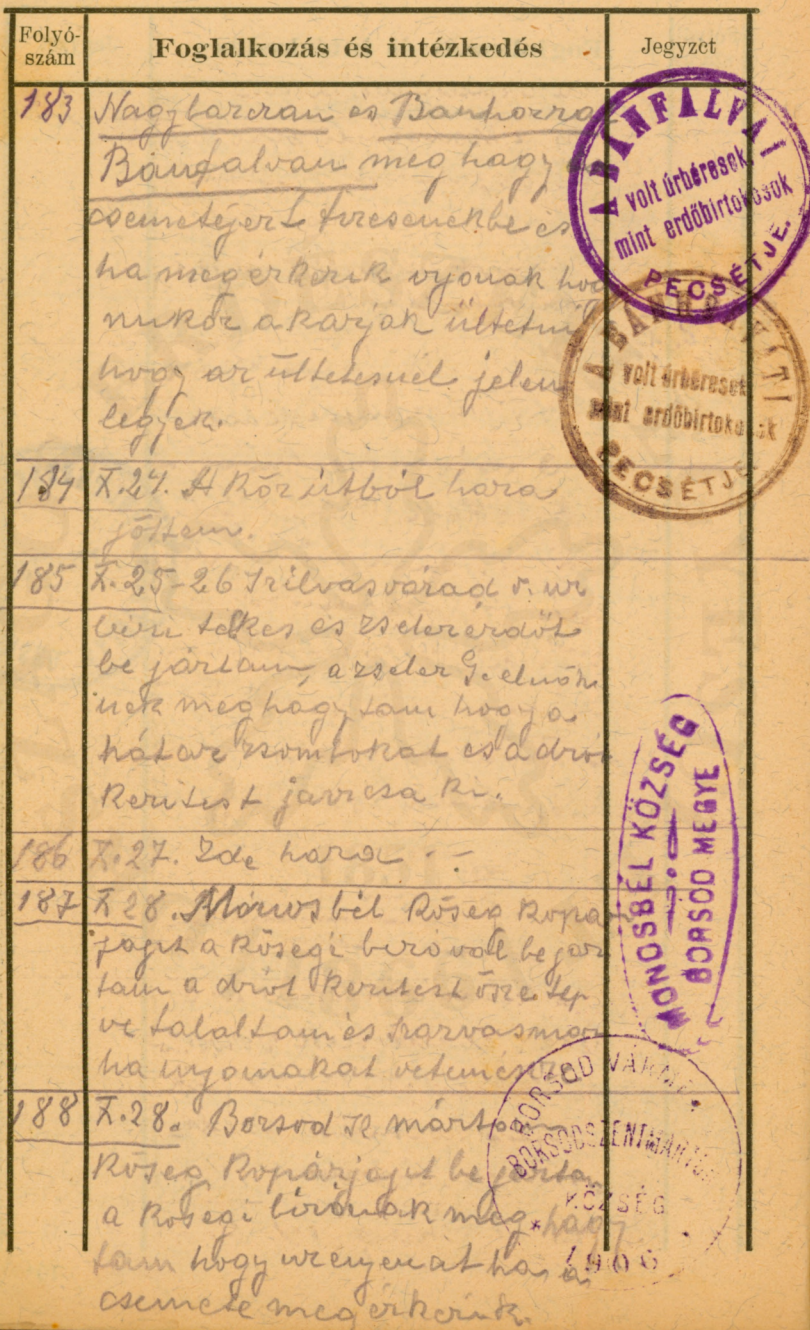 Folyó-
szám
Foglalkozás és intézkedés
Jegyzet
183 Nagybarcran és Banhorra
Bánfalvan meg hagy
csemetéjert
ha megérkerik irjonak hog
mikor akarjak ültetni
hogy ar ültetesnél jelen
legyek.
A BÁNFALVAI
volt úrbéresek
mint erdőbirtokosok
PECSÉTJE.
A BÁNHORVÁTI
volt úrbéresek
mint erdőbirtokosok
PECSÉTJE
184 X.24. A Kőrútból hara
jöttem.
185 X.25-26 Szilvasvárad v. ur
biri telkes és zselerérdőt
be jártam, a zseler G. elnök
nek meghágytam hogy a
hátar zsomtokat és a drót
Keritest javicsa ki.
186 X.27. Zde hara -
187 X 28. Mónosbél Kőseg Kopar
jajit a Kősegi biroval be jar
tam a drót Keritest össze tep
ve talaltam és szarvasmar
ha nyomakat
MÓNOSBÉL KÖZSÉG
BORSOD MEGYE
188 X.28. Borsod sz márton
Kőseg Kopárjajit be jarta
a Kosegi birónak meg hagy
tam hogy irenyenat ha a
csemete meg érkerik.
BORSOD VÁRM.
BORSODSZENTMÁRTON
KÖZSÉG
1906